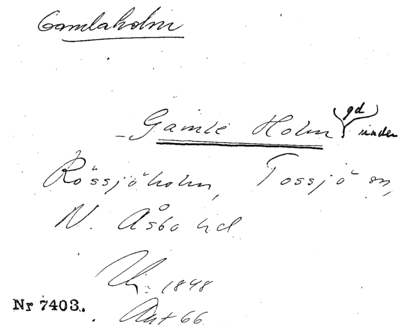 Gamlaholm
- Gamle Holm gd under
Rössjöholm, Tossjö sn,
N. Åsbo hd
1848
Nr 7403.
66